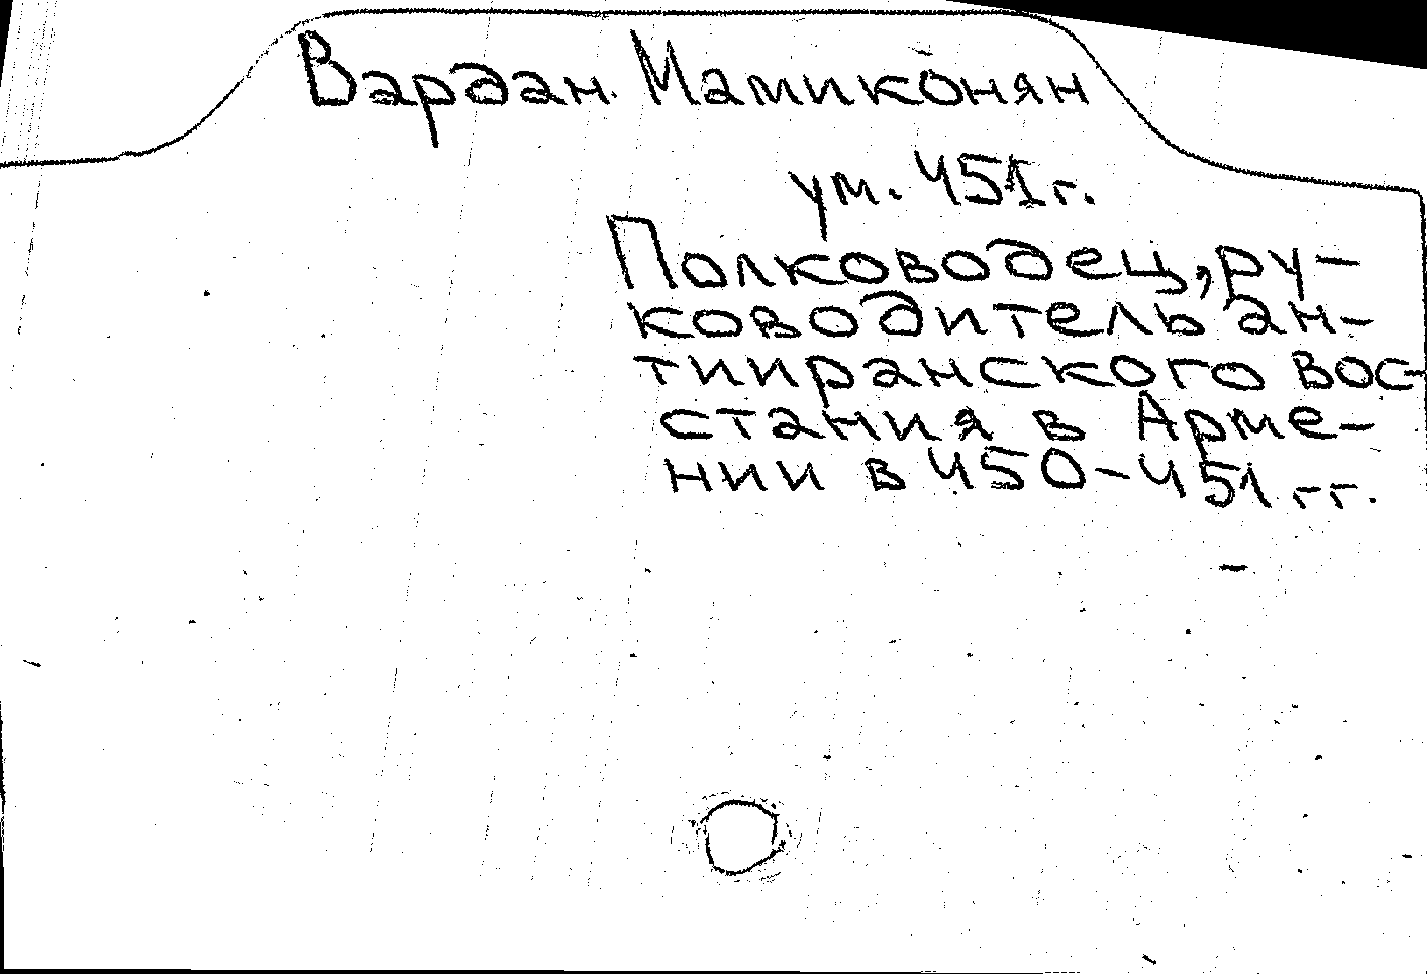 Вардан Мамиконян
ум. 451 г.
Полководец, ру-
ководитель ан-
тииранского вос-
стания в Арме-
нии в 450-451 гг.